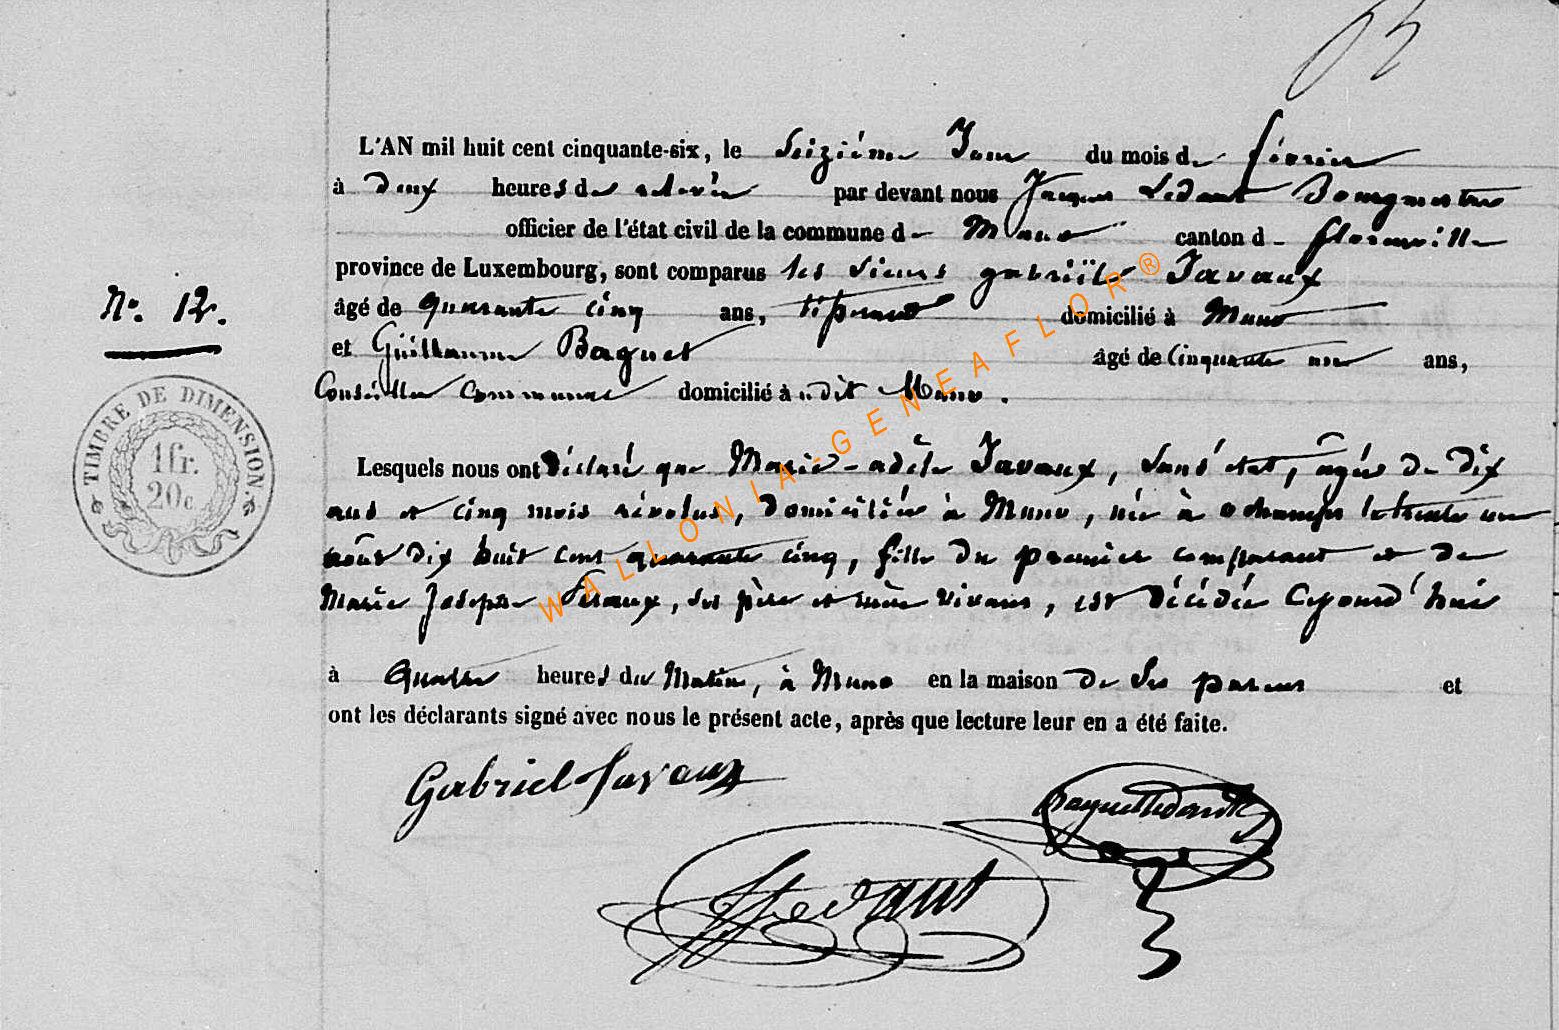 L'AN mil huit cent cinquante-six, le Seizième Jour du mois de février
à deux heures de relevée par devant nous Jacques Ledant Bourgmestre
officier de l'état civil de la commune de Muno canton de florenville
province de Luxembourg, sont comparus les Sieurs gabriël Javaux
âgé de quarante cinq ans, domicilié à Muno
et Guillaume Baquet âgé de Cinquante ans,
Conseiller Communal domicilié à dit Muno.
N°. 12.
TIMBRE DE DIMENSION.
1 fr.
20c
Lesquels nous ont Déclaré que Marie-adèle Javaux, Sans état, âgée de dix
ans et cinq mois révolus, domiciliée à Muno, née à le trente un
août dix huit cent quarante cinq, fille du premier comparant et de
Marie Josephe, ses père et mère vivans, est décédée Cejourd'hui
à Quatre heures du Matin, à Muno en la maison de Ses parens et
ont les déclarants signé avec nous le présent acte, après que lecture leur en a été faite.
Gabriel Javaux
Ledant
WALLONIA-GENEAFLOR®